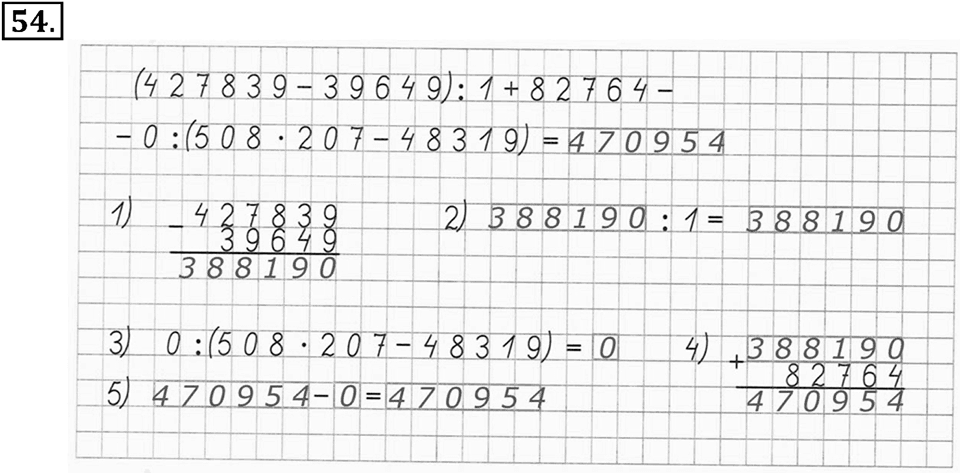 54.
(427839 – 39649) : 1 + 82764 –
– 0 : (508 · 207 – 48319) = 470954
1) – 427839 2) 388190 : 1 = 388190
39649
388190
3) 0 : (508 · 207 – 48319) = 0 4) + 388190
82764
5) 470954 – 0 = 470954 470954